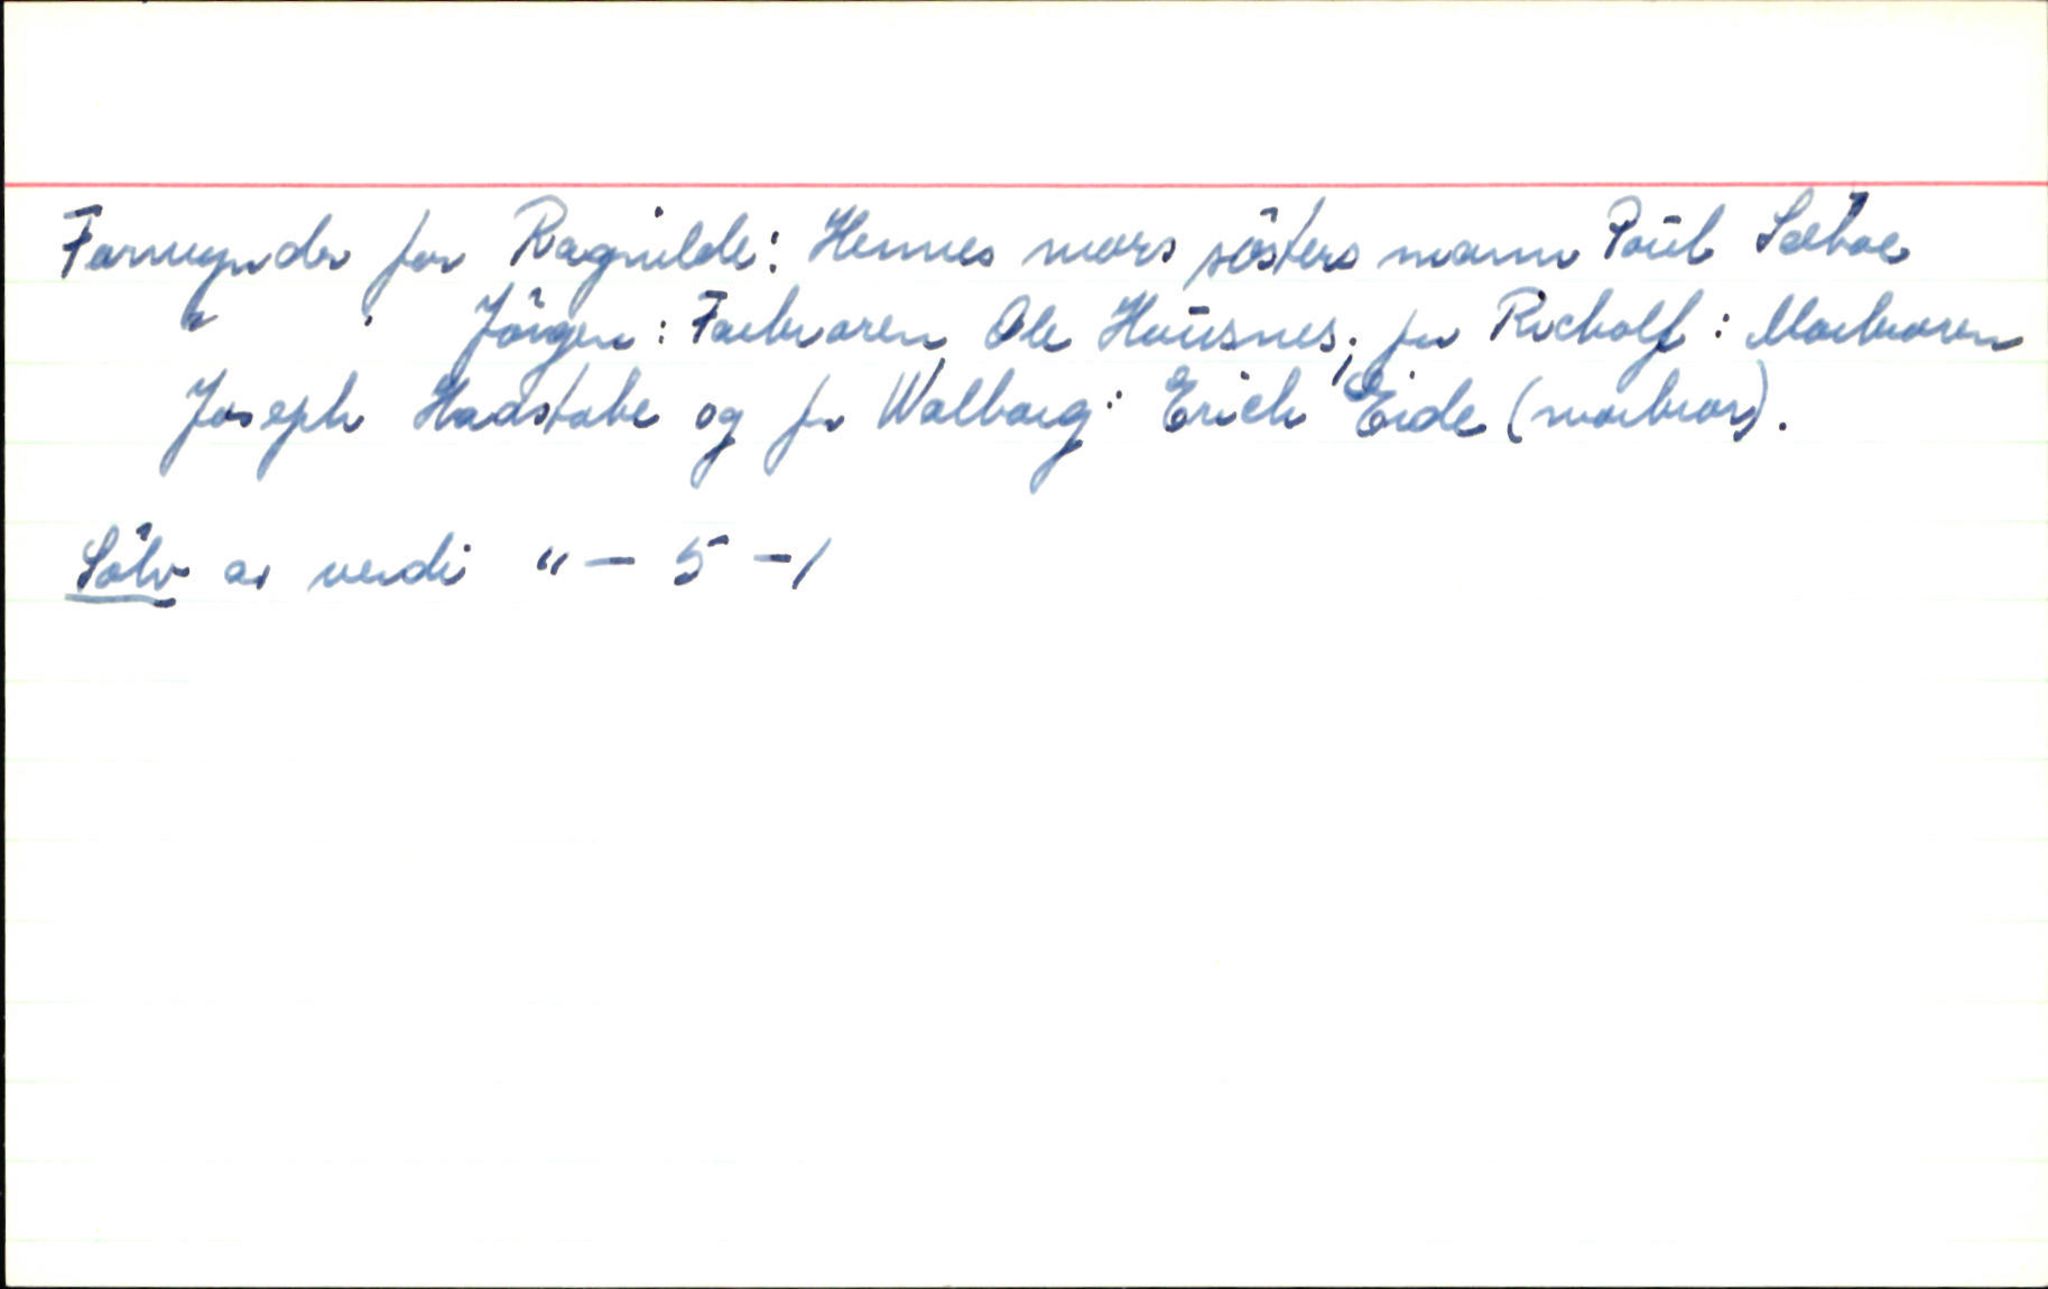 Formynder for Ragnilde: Hennes mors søsters mann Poül Sæboe
" " Jörgen: Farbroren Ole Hoüsnes; for Richolf: Morbroren
Joseph Haastabe og for Walborg: Erich Eide (morbror).
Sölv av verdi " - 5 - 1